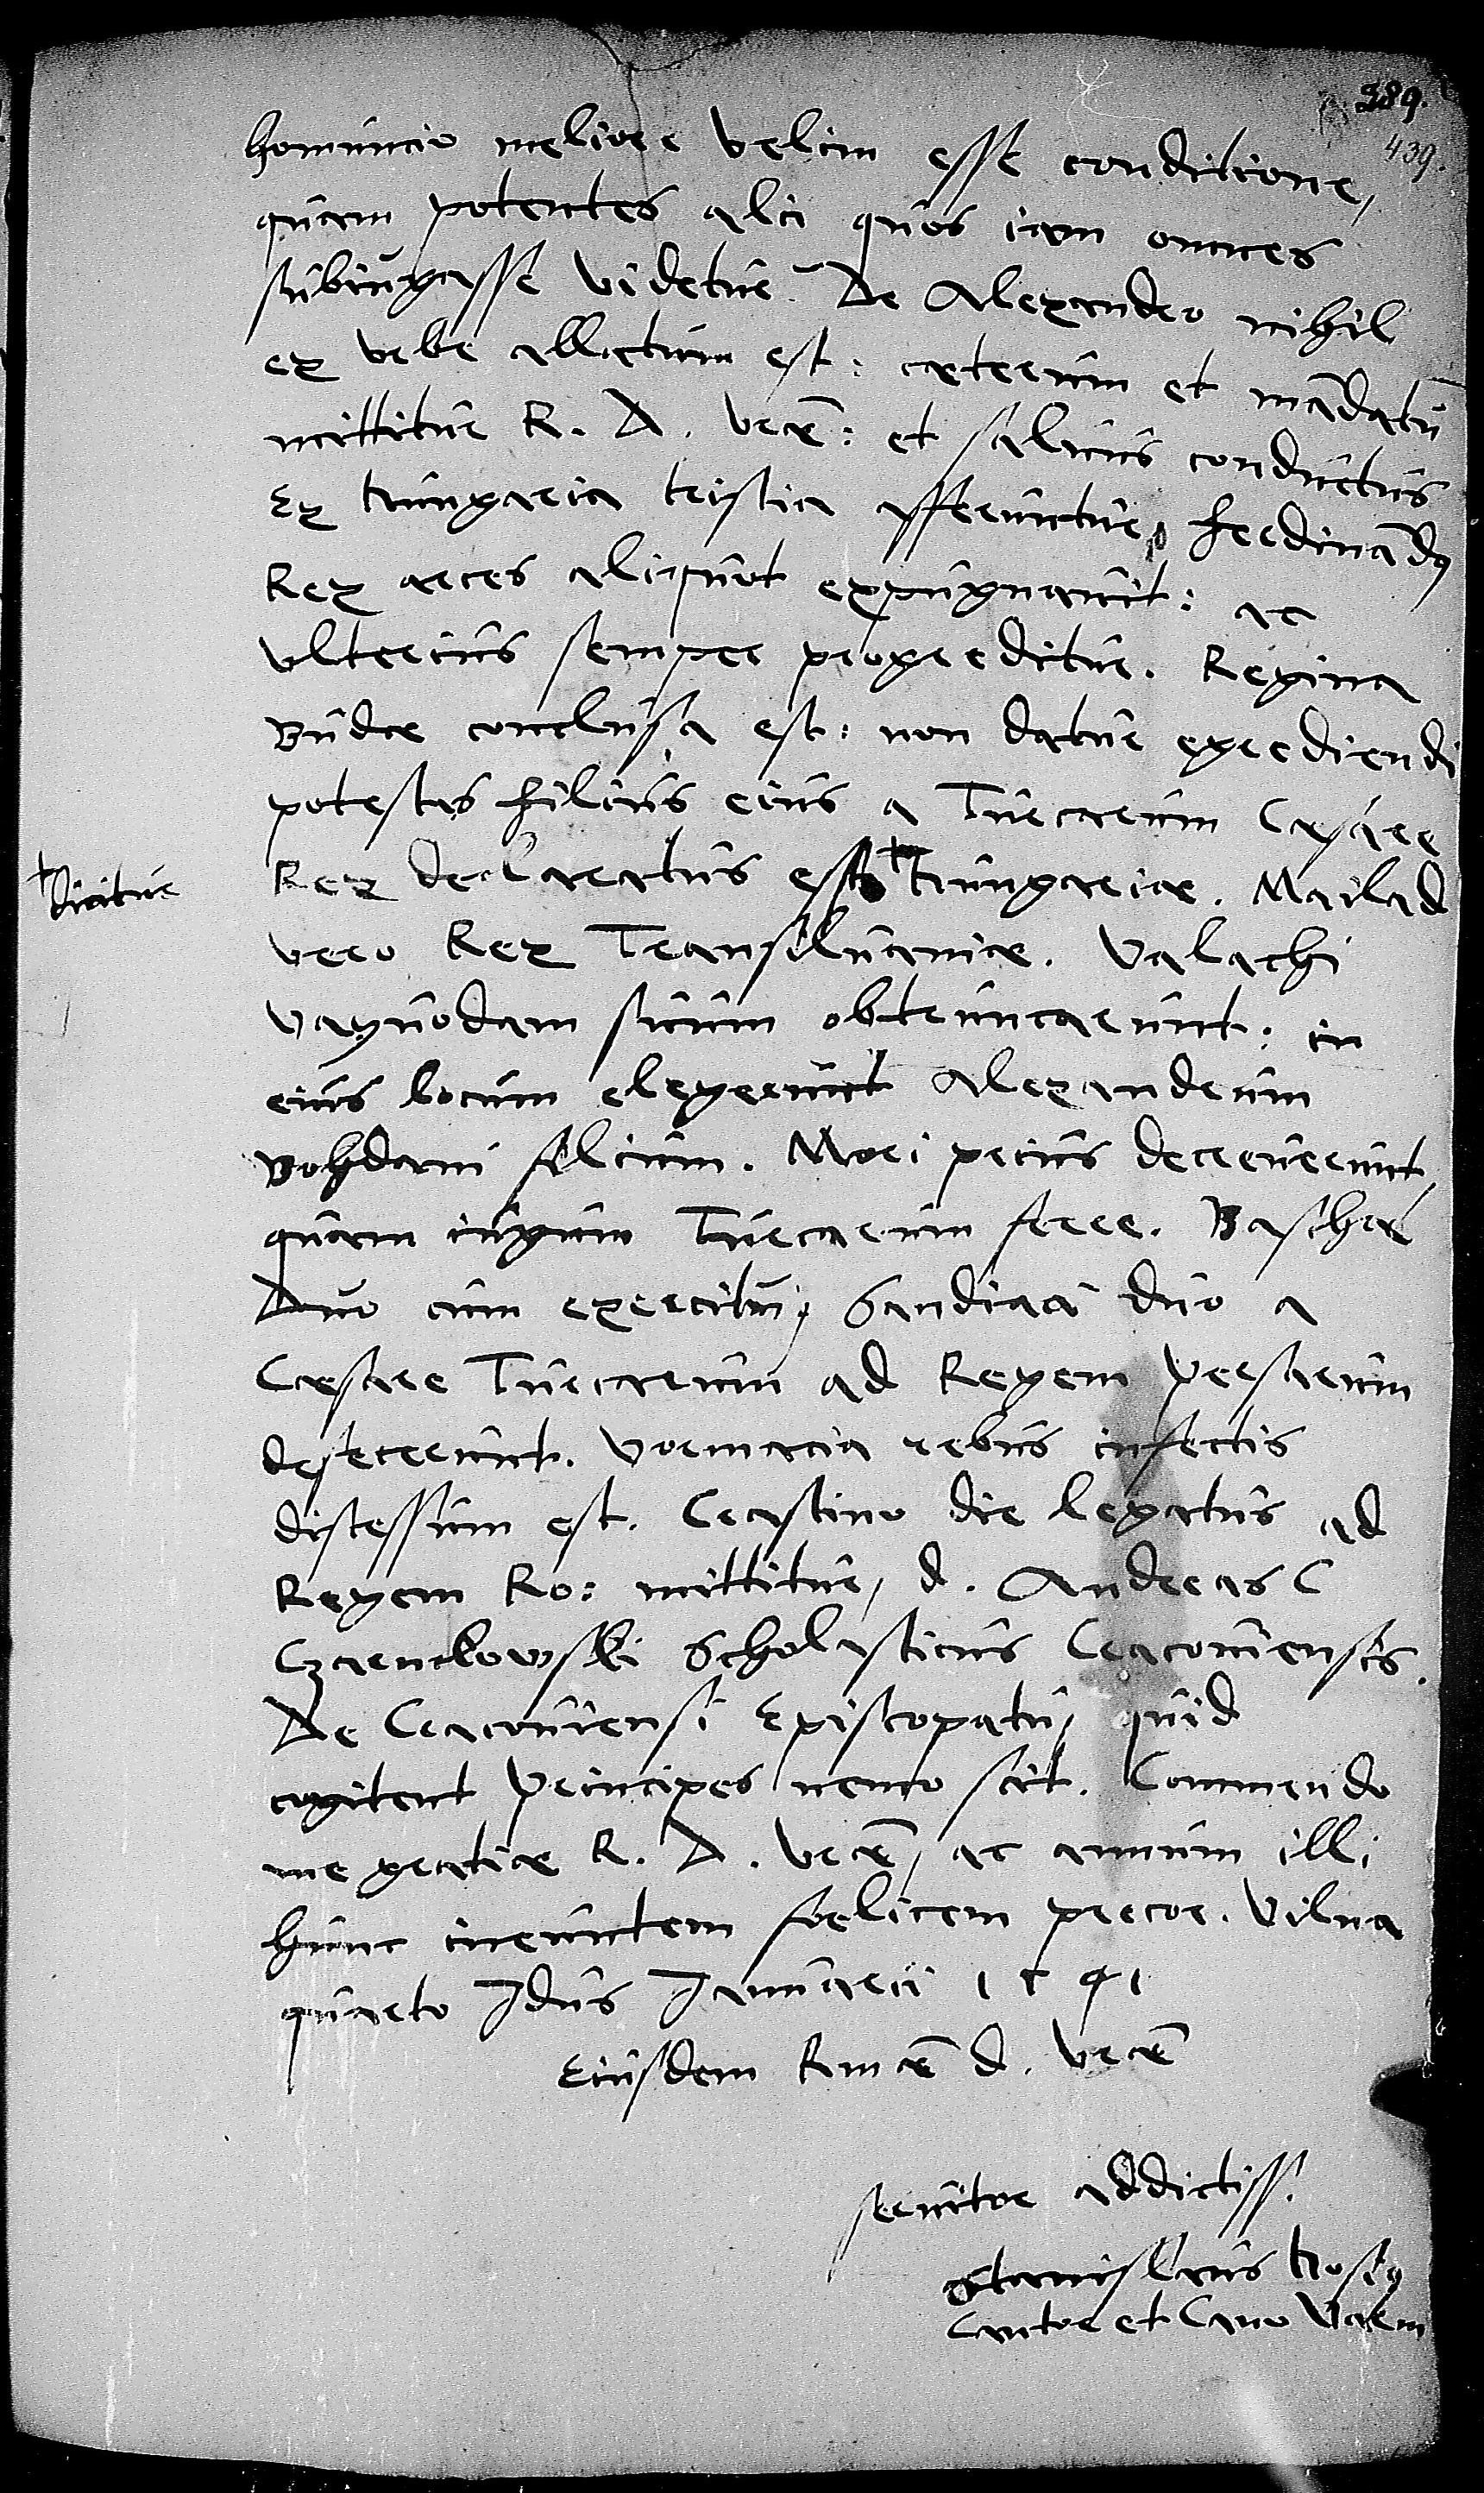 389.
439.
homuncio meliore velim esse conditione,
quam potentes alii quos iam omnes
subiugasse videtur. De Alexandro nihil
ex urbe allatum est: caeterum et mādatū
mittitur R. D. vrae: et saluus conductus
Ex Hungaria tristia afferuntur, Ferdinādus
Rex arces aliquot expugnauit: ac
vlterius semper progreditur. Regina
Budae conclusa est: non datur egrediendi
potestas filius eius a Turcarum Cesare
Rex declaratus esse + Hungariae. Mailad
+ dicitur
vero Rex Transiluaniae. Valachi
vayuodam suum obtruncarunt: in
eius locum elegerunt Alexandrum
Bohdani filium. Mori prius decreuerunt
quam iugum Turcarum ferre. Baschae
Duo cum exercitu, Sandiaci duo a
Caesare Turcarum ad Regem Persarum
defecerunt. Vormacia rebus infectis
discessum est. Crastino die legatus ad
Regem Ro: mittitur, d. Andreas C
Czarnkowski Scholasticus Cracouiensis.
De Cracouiensi Episcopatu, quid
cogitent Principes nemo scit. Commendo
me gratiae R. D. vrae, ac annum illi
hunc ineuntem foelicem precor. Vilna
quarto Idus Januarii 1541
Eiusdem Rmae d. vrae
seruitor addictiss.
Stanislaus Hosius
Cantor et Cano Varm